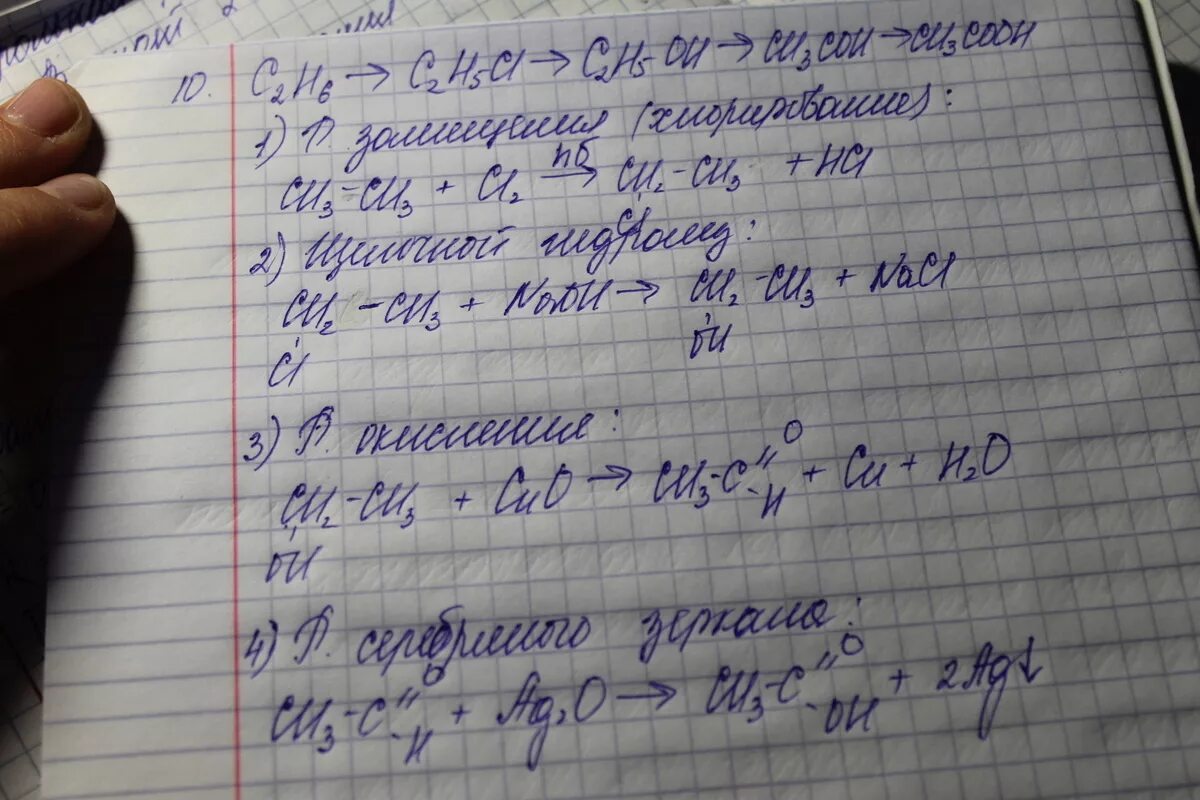 10. C₂H₆ → C₂H₅Cl → C₂H₅OH → CH₃COH → CH₃COOH
1) Р. замещения (хлорирование):
CH₃-CH₃ + Cl₂ → CH₂-CH₃ + HCl
Cl
2) Щелочной гидролиз:
CH₂-CH₃ + NaOH → CH₂-CH₃ + NaCl
Cl OH
3) Р. окисления:
O
CH₂-CH₃ + CuO → CH₃-C-H + Cu + H₂O
OH
4) Р. серебряного зеркала:
O O
CH₃-C-H + Ag₂O → CH₃-C-OH + 2Ag↓